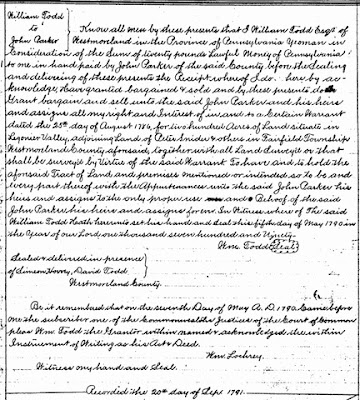 William Todd
to
John Parker
Know all men by these presents that I William Todd Esqr of
Westmoreland in the Province of Pennsylvania Yeoman in
Consideration of the Sum of twenty pounds Lawful Money of Pennsylvania
to me in hand paid by John Parker of the said County before the Sealing
and delivering of these presents the Receipt whereof I do hereby ac-
knowledge Have granted bargained & sold and by these presents do
Grant bargain and sell unto the said John Parker and his heirs
and assigns all my right and Interest of in and to a Certain Warrant
dated the 25th day of August 1786, for two hundred Acres of Land situate in
Ligoneer Valley, adjoining Land of Peter & others in Fairfield Township
Westmoreland County aforesaid, together with all Land surveyed or that
shall be surveyed by Virtue of the said Warrant To have and to hold the
aforesaid Tract of Land and premises mentioned or intended so to be and
every part thereof with the Appurtenances unto the said John Parker his
heirs and assigns to the only proper use and Behoof of the said
John Parker, his heirs and assigns for ever In Witness whereof The said
William Todd Hath hereunto set his hand and Seal this fifth day of May 1790 in
the Year of our Lord one thousand seven hundred and Ninety
Wm Todd Seal
Sealed & delivered in presence
of David Todd
Westmoreland County.
Be it remembered that on the seventh Day of May A.D. 1790 Came before
me the subscriber one of the Commonwealths Justices of the Court of Common
pleas Wm Todd the Grantor within named & acknowledged the within
Instrument of Writing as his Act & Deed.
Wm Lochrey.
Witness my hand and Seal.
Recorded the 20th day of Sept 1791.